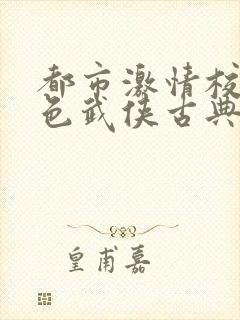 都市激情校
色武侠古典
皇甫嘉